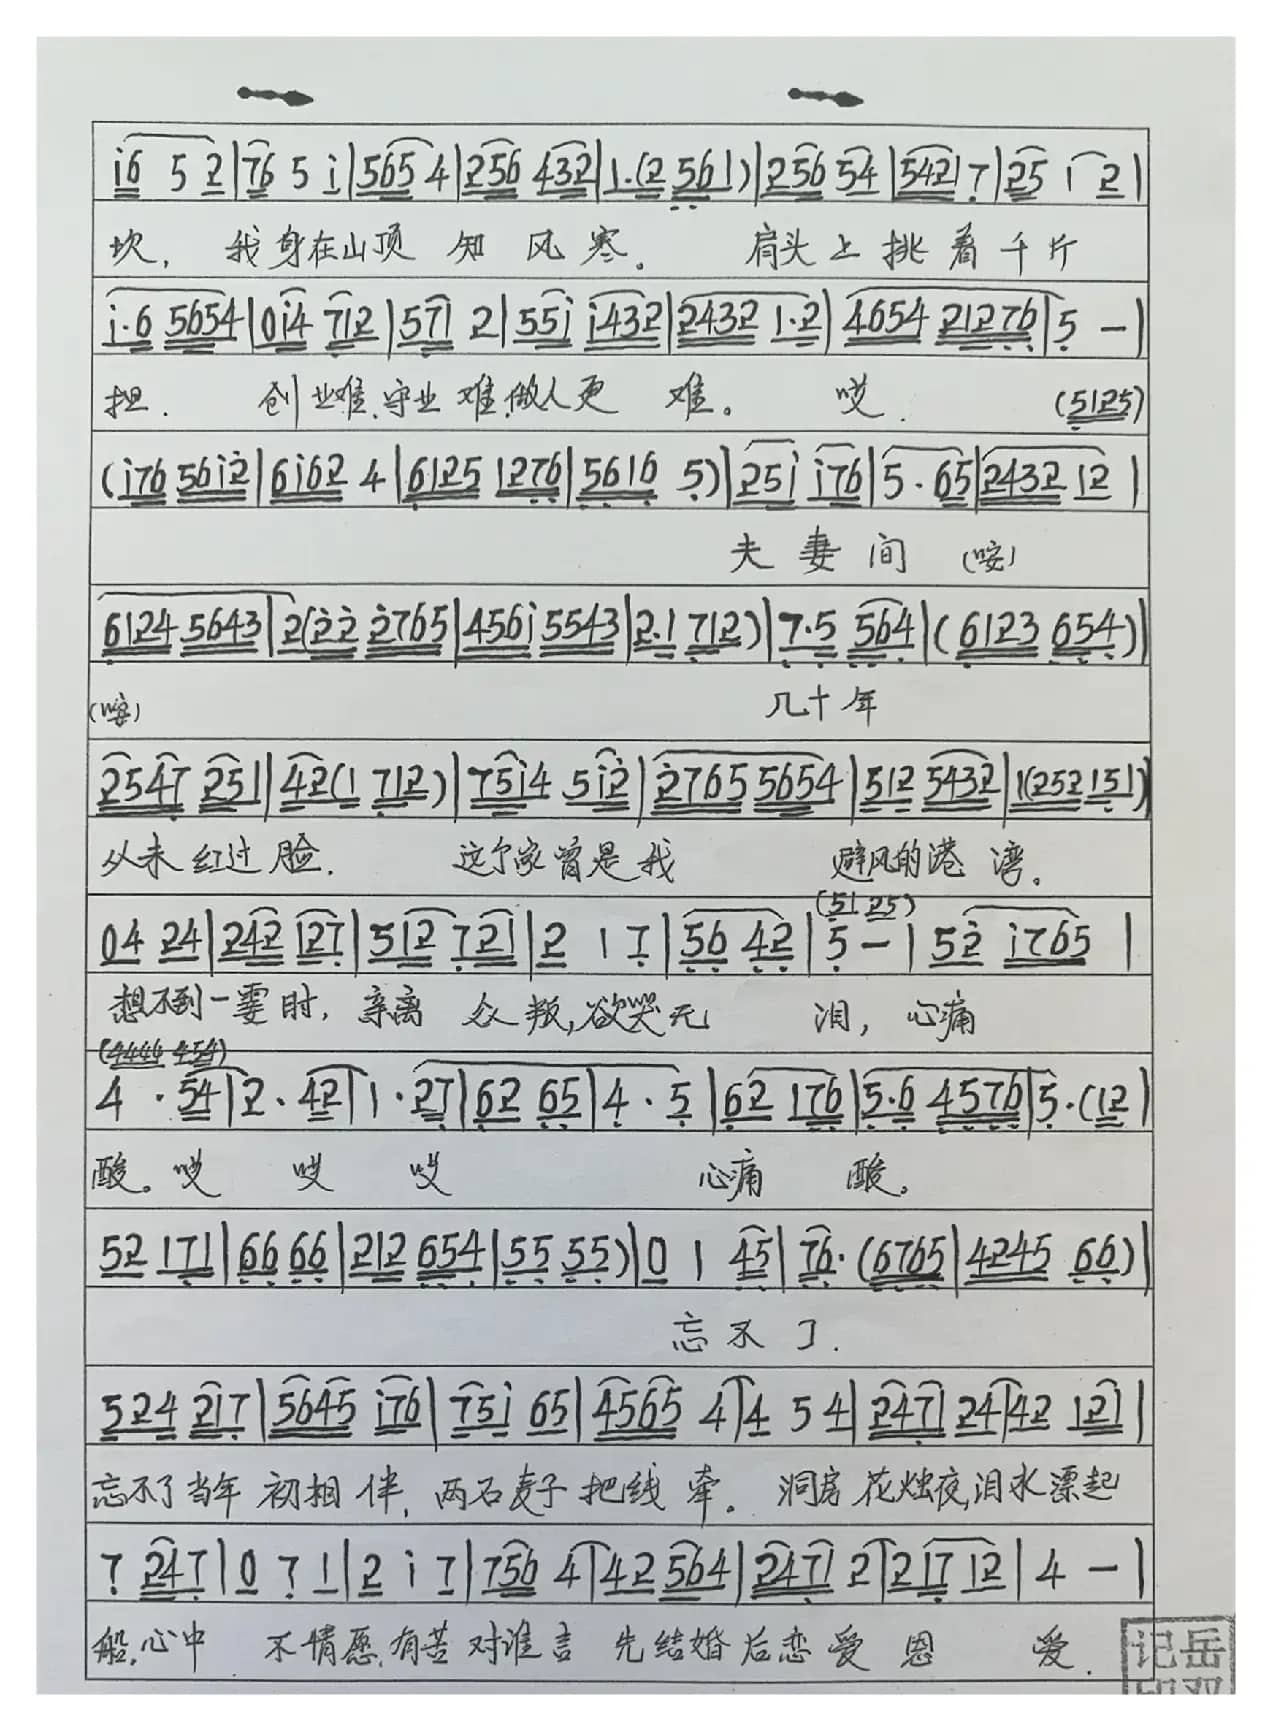 i6 5 2|76 5 i|565 4|256 432|1·(2 561)|256 54|5421 7|25 1 2|
坎, 我身在山顶 知 风 寒. 肩头上 挑 着 千 斤
i·6 5654|0i4 712|571 2|55i i432|2432 1·2|4654 21276|5 —|
担. 创业难,守业 难,做人更 难。 哎. (5125)
(i76 56i2|6i62 4|6125 1276|5616 5)|25i i76|5·65|2432 12|
夫 妻 间 (咹)
6124 5643|2(22 2765|456i 5543|2·1 712)|7·5 564|(6123 654)|
(咹) 几十年
2547 251|42(1 712)|75i4 5i2|2765 5654|512 5432|1(252 151)|
从未 红过 脸. 这个家曾是我 避风的港 湾。
(51 25)
04 24|242 127|512 721|2 1 7|56 42|5 —|52 i765|
想不到一霎时, 亲离 众 叛,欲哭无 泪, 心痛
(4444 454)
4·54|2·42|1·27|62 65|4·5|62 176|5·6 4576|5·(12|
酸。哎 哎 哎 心痛 酸。
52 171|66 66|212 654|55 55)|0 1 45|76·(6765|4245 66)|
忘 不 了.
524 217|5645 i76|75i 65|4565 4|4 5 4|2471 24|42 121|
忘不了当年 初相 伴, 两石麦子 把线 牵。 洞房 花烛夜,泪水漂起
7 247|0 7 1|2 i 7|756 4|42 564|2471 2|217 12|4 —|
船,心中 不情愿,有苦 对谁言 先结婚后恋 爱 恩 爱.
岳
记